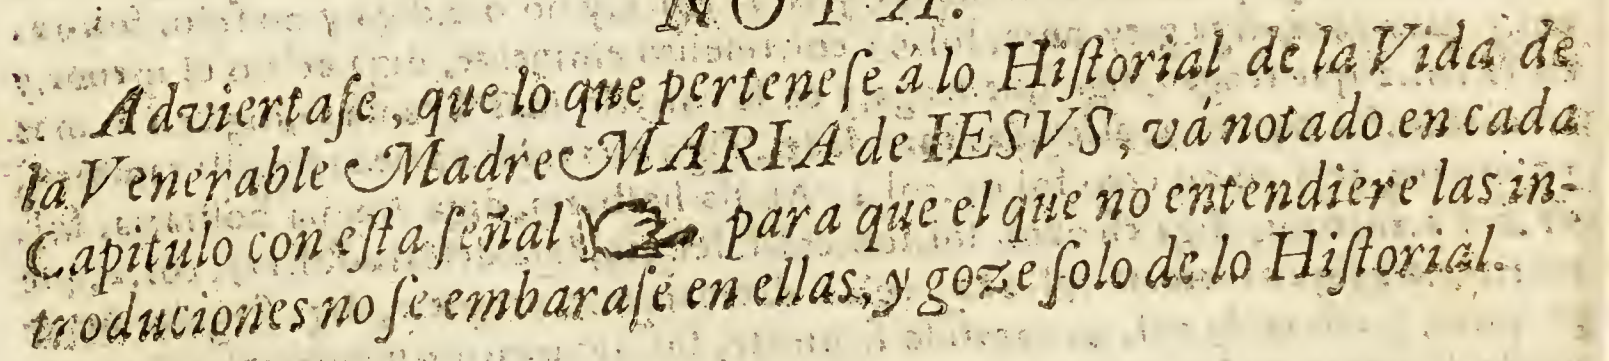 NOTA.
Adviertase, que lo que pertenese á lo Historial de la Vida de
la Venerable Madre MARIA de IESVS, vá notado en cada
Capitulo con esta señal ☞ para que el que no entendiere las in-
troduciones no se embarase en ellas, y goze solo de lo Historial.